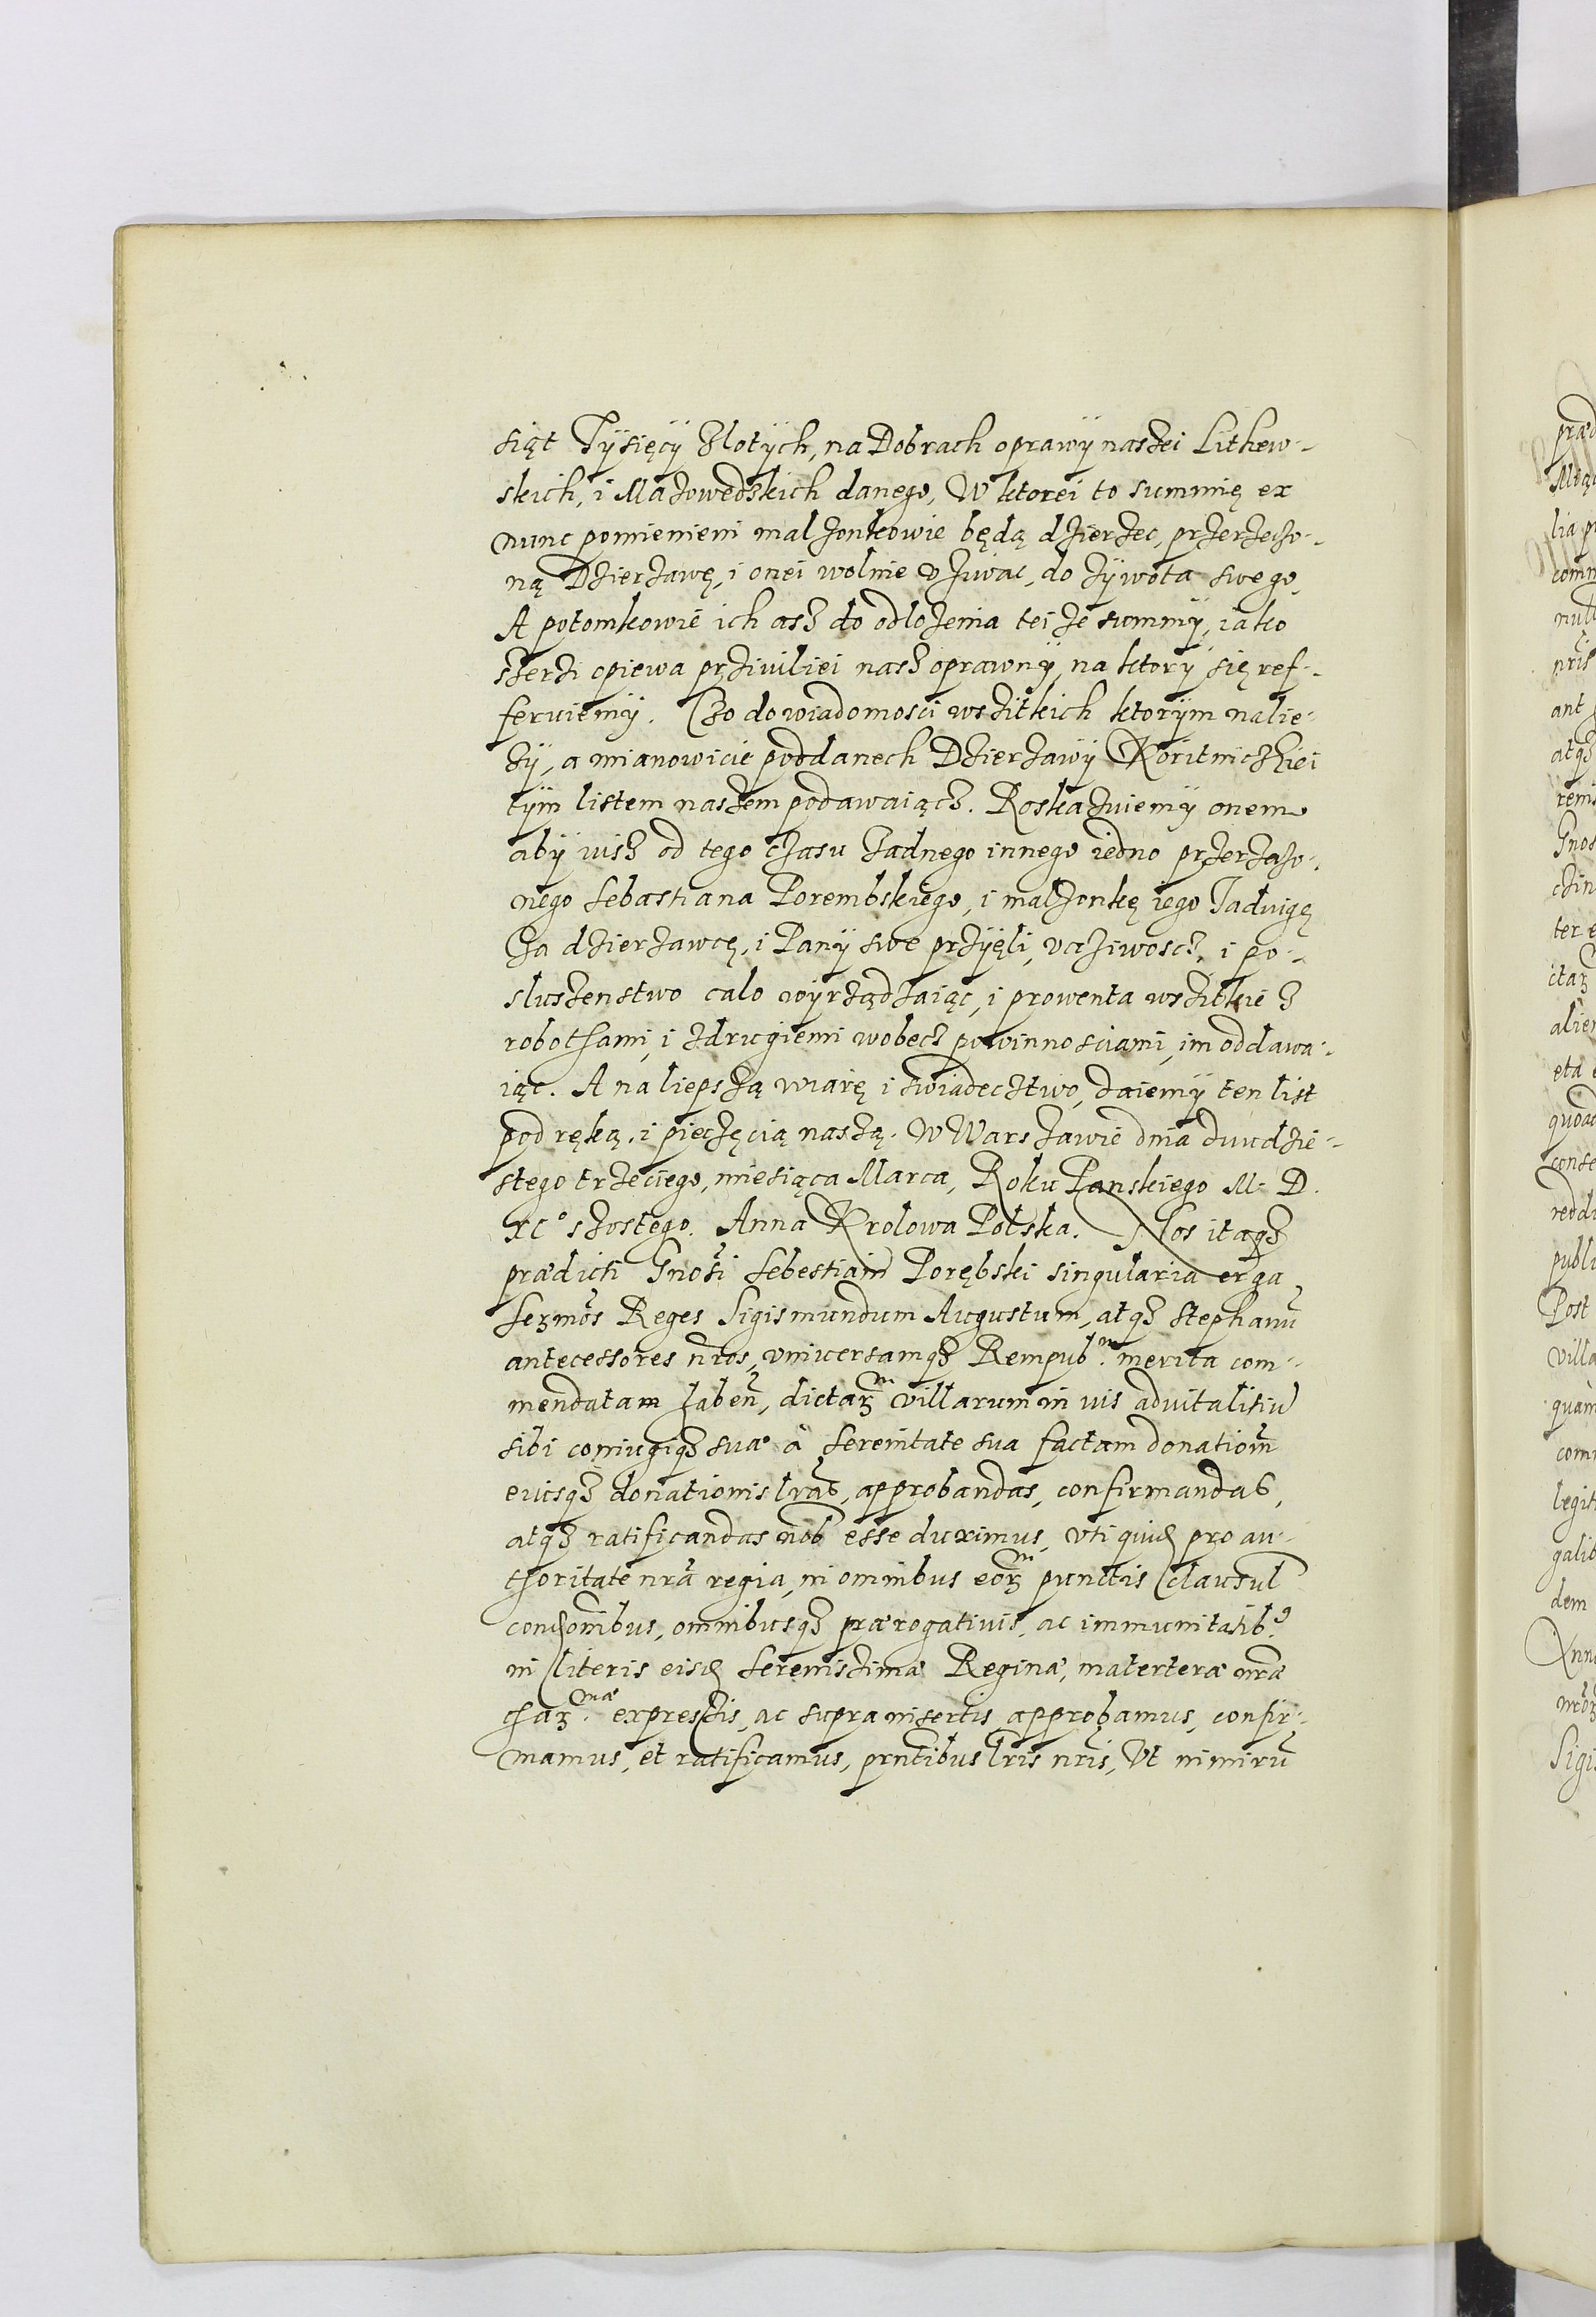 siąt Tÿsięcÿ Zlotÿch, na Dobrach oprawÿ naszei Lithew-
skich, i Mazowedskich danego, W ktorei to summię ex
nunc pomienieni malzonkowie będą dzierzec, przerzeczo-
ną Dzierzawę, i onei wolnie vzuwac, do zÿwota swego,
A potomkowie ich asz do odlozenia tei ze summÿ, iako
szerzi opiewa prziuiliei nasz oprawnÿ, na ktorÿ się ref-
feruiemÿ. Czo do wiadomosci wszitkich ktorÿm nalie-
zÿ, a mianowicie poddanech Dzierzawÿ Koritniczkiei
tÿm listem naszem podawaiącz. Roskazuiemÿ onem
abÿ iusz od tego czasu zadnego innego iedno przerzeczo-
nego Sebastiana Porembskiego, i malzonkę iego Jadwigę
Za dzierzawcę, i Panÿ swe przÿięli, vcziwoscz, i po-
sluszenstwo calo wÿrządzaiąc, i prowenta wszitkie z
robothami, i zdrugiemi wobecz powinnosciami, im oddawa-
iąc. A na liepszą wiarę i swiadecztwo, daiemÿ ten list
pod ręką, i pieczęcią naszą. W Warszawie dnia dwudzie-
stego trzeciego, miesiąca Marca, Roku Panskiego M. D.
XC° szostego. Anna Krolowa Polska. Nos itaqz
prædicti Gnosi Sebestiani Porębski singularia erga
Sezmos Reges Sigismundum Augustum, atqz Stephanu
antecessores nros, vniuersamqz Rempub.m merita com-
mendatam haben, dictazm villarum in uis aduitalitiu
sibi coniugiqz suæ à Serenitate sua factam donationm
eiusqz donationis lras, approbandas, confirmandas,
atqz ratificandas nob esse duximus, vti quid pro au-
thoritate nra regia, in omnibus eozm punctis clausul
condonibus, omnibusqz prærogatiuis, ac immunitatib9
in literis eisd Serenissimæ Reginæ, materteræ nræ
chaz.mæ expressis, ac supra insertis approbamus, confir-
mamus, et ratificamus, prntibus lris nris, Vt nimiru